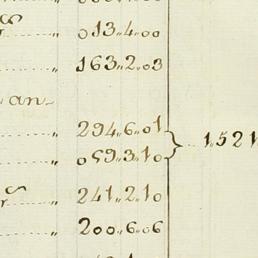 013,,4,,00
163,,2,,03
an-
294,,6,,01
059,,3,,10
1,,521
241,,2,,10
200,,6,,06